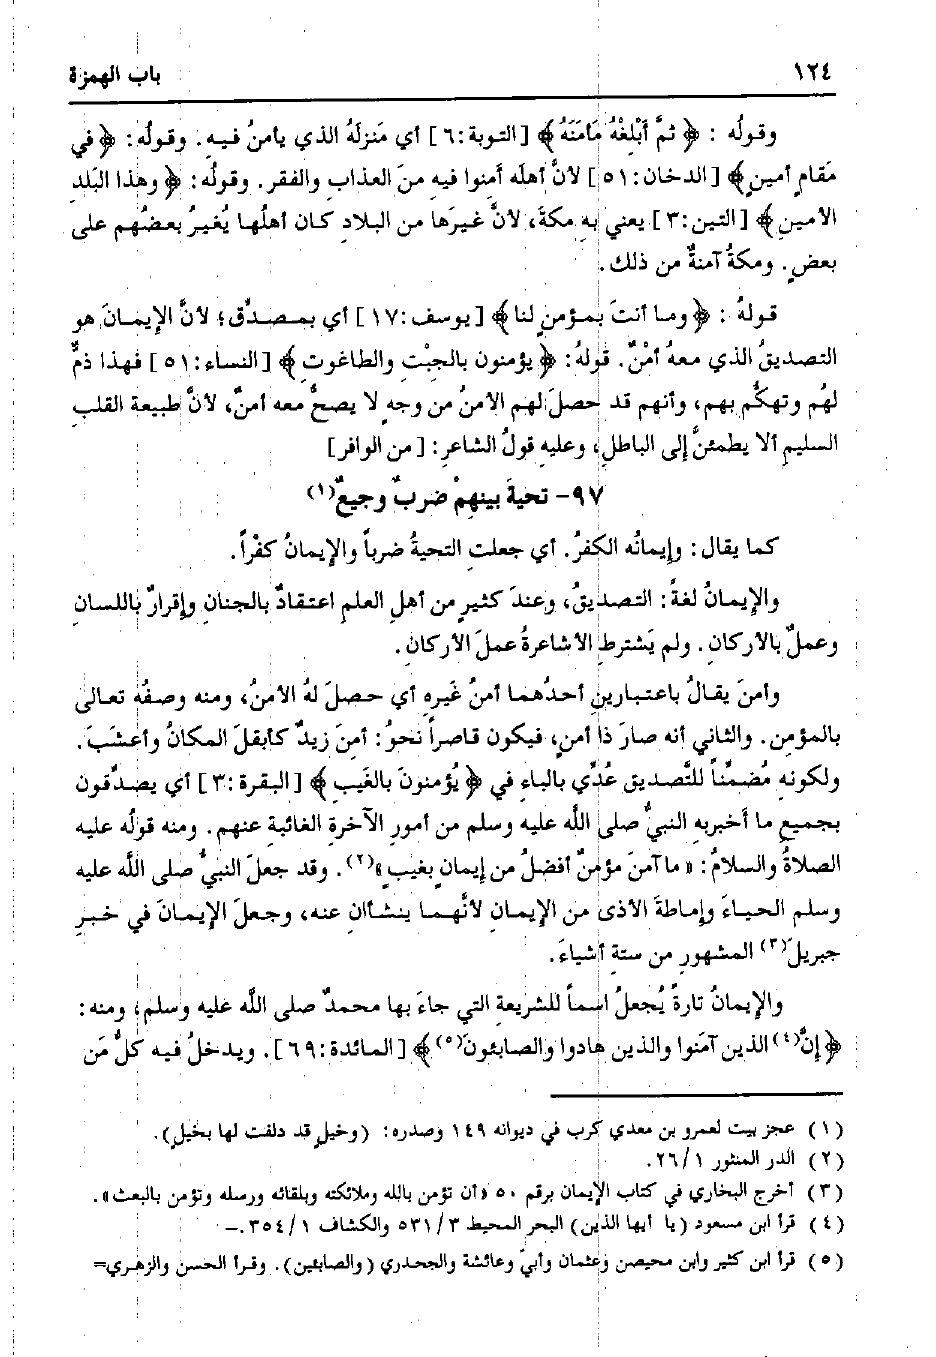 ١٢٤
باب الهمزة
وقولُه : ﴿ ثمَّ أَبْلغْهُ مَأمَنَهُ ﴾ [التوبة:٦] أي مَنزلَهُ الذي يأمنُ فيهِ. وقولُه: ﴿ في
مَقامٍ أمينٍ ﴾ [الدخان:٥١] لأنَّ أهلَه أَمِنوا فيه منَ العذابِ والفقرِ. وقولُه: ﴿ وهذا البَلدِ
الأمينِ ﴾ [التين:٣] يعني به مكةَ، لأنَّ غيرَها من البلادِ كان أهلُها يُغيرُ بعضُهم على
بعضٍ. ومكةُ آمنةٌ من ذلك.
قولهُ : ﴿ وما أنتَ بمؤمنٍ لنا ﴾ [يوسف:١٧] أي بمصدِّق؛ لأنَّ الإيمانَ هو
التصديقُ الذي معهُ أمْنٌ. قولهُ: ﴿ يؤمنون بالجِبْتِ والطاغوتِ ﴾ [النساء:٥١] فهذا ذمٌّ
لهُم وتهكُّم بهم، وأنهم قد حصلَ لهم الأمنُ من وجهٍ لا يصحُّ معه أمنٌ، لأنَّ طبيعة القلبِ
السليمِ ألا يطمئنَّ إلى الباطلِ، وعليهِ قولُ الشاعرِ: [من الوافر]
٩٧- تحيةَ بينهِمْ ضربٌ وجيعٌ(١)
كما يقال: وإيمانُه الكفرُ. أي جعلتِ التحيةُ ضرباً والإيمانُ كفْراً.
والإيمانُ لغةً: التصديقُ، وعندَ كثيرٍ من أهلِ العلمِ اعتقادٌ بالجنانِ وإقرارٌ باللسانِ
وعملٌ بالأركانِ. ولم يَشترطِ الأشاعرةُ عملَ الأركانِ.
وأمنَ يقالُ باعتبارينِ أحدُهما أمنُ غَيرِه أي حصلَ لهُ الأمنُ، ومنه وصفُه تعالى
بالمؤمنِ. والثاني أنه صارَ ذا أمنٍ، فيكون قاصراً نحوُ: أمنَ زيدٌ كأبقلَ المكانُ وأعشَبَ.
ولكونهِ مُضمَّناً للتَّصديق عُدِّي بالباءِ في ﴿ يُؤمنونَ بالغَيبِ ﴾ [البقرة:٣] أي يصدِّقون
بجميعِ ما أَخبربه النبيُّ صلى اللَّه عليه وسلم من أمورِ الآخرةِ الغائبةِ عنهم. ومنه قولُه عليه
الصلاةُ والسلامُ: « ما آمنَ مؤمنٌ أفضلُ من إيمان بغيبٍ »(٢). وقد جعلَ النبيُّ صلى اللَّه عليه
وسلم الحياءَ وإماطةَ الأذى من الإيمانِ لأنَّهما ينشأانِ عنه، وجعلَ الإيمانَ في خبرِ
جبريلَ(٣) المشهورِ من ستةِ أشياءَ.
والإيمانُ تارةً يُجعلُ اسماً للشريعةِ التي جاءَ بها محمدٌ صلى اللَّه عليه وسلم، ومنه:
﴿ إنَّ(٤) الذين آمَنوا والذين هادوا والصابئونَ(٥) ﴾ [المائدة:٦٩]. ويدخلُ فيه كلُّ مَن
(١) عجز بيت لعمرو بن معدي كرب في ديوانه ١٤٩ وصدره: (وخيلٍ قد دلفت لها بخيلٍ).
(٢) الدر المنثور ١/٢٦.
(٣) أخرج البخاري في كتاب الإيمان برقم ٥٠ «أن تؤمن بالله وملائكته وبلقائه ورسله وتؤمن بالبعث».
(٤) قرأ ابن مسعود (يا أيها الذين) البحر المحيط ٣/٥٣١ والكشاف ١/٣٥٤.-
(٥) قرأ ابن كثير وابن محيصن وعثمان وأبيّ وعائشة والجحدري (والصابئين). وقرأ الحسن والزهري=